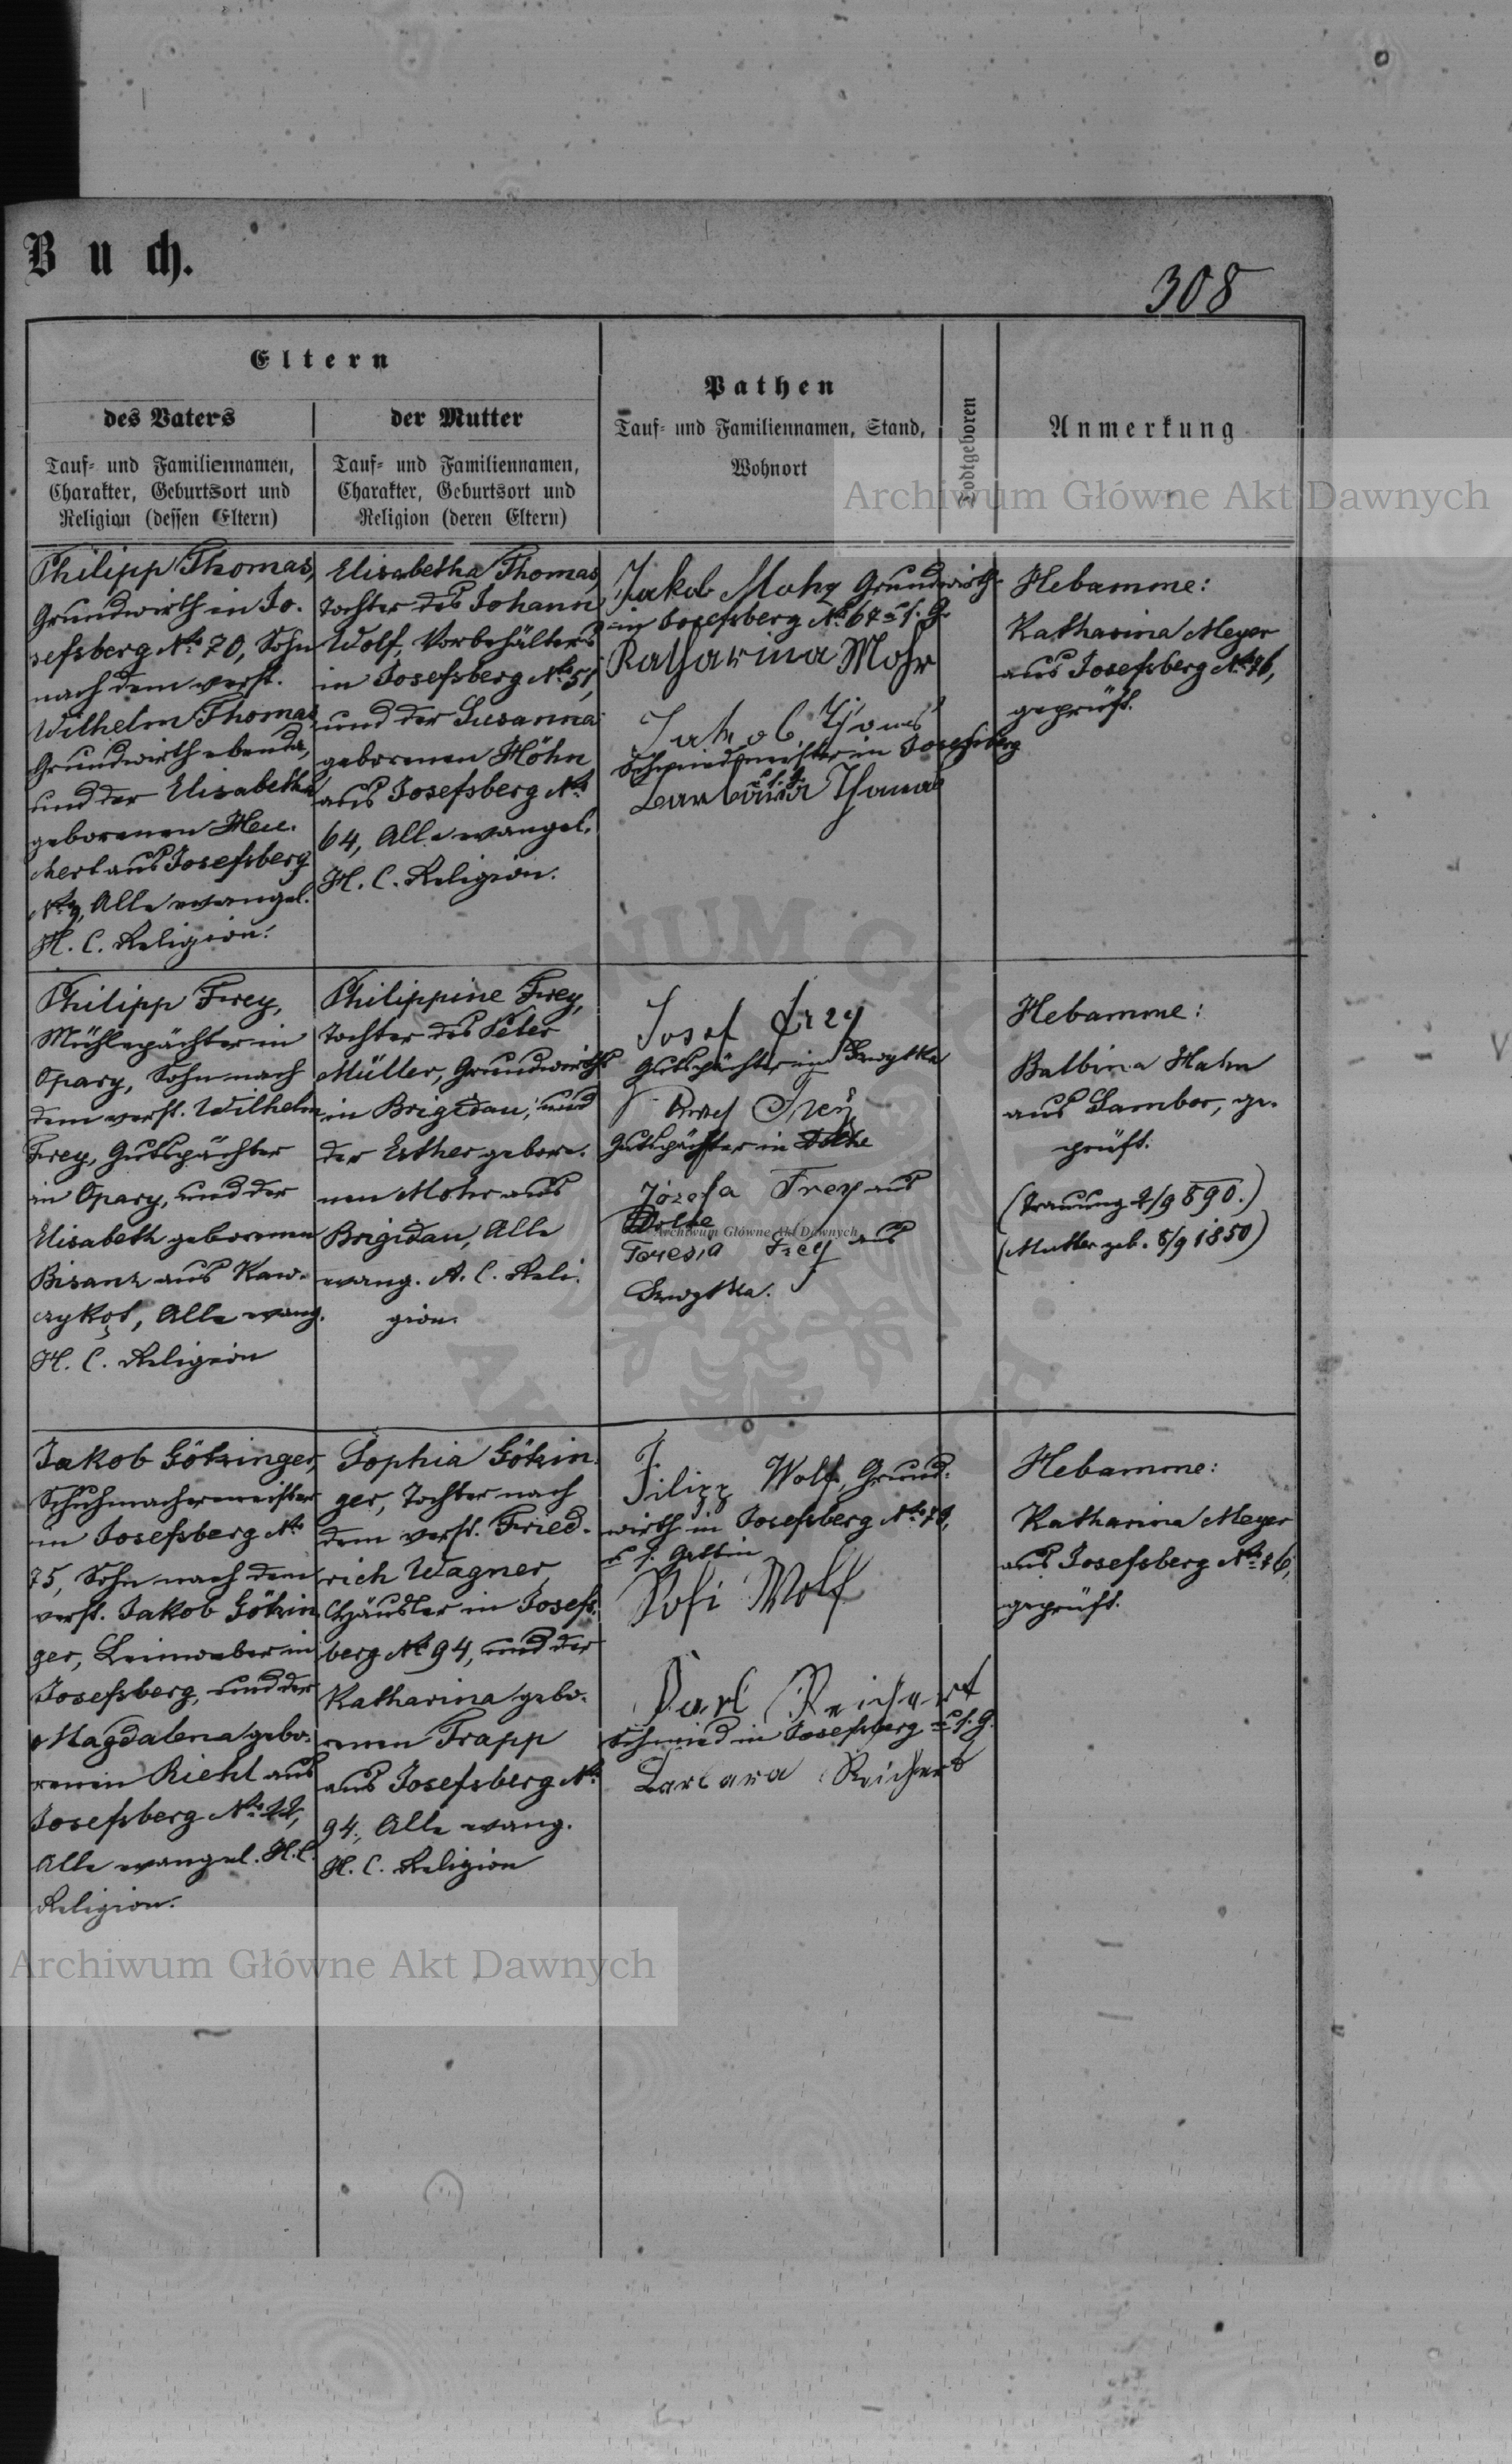 Buch.
308
Eltern
des Vaters
Tauf- und Familiennamen,
Charakter, Geburtsort und
Religion (dessen Eltern)
der Mutter
Tauf- und Familiennamen,
Charakter, Geburtsort und
Religion (deren Eltern)
Pathen
Tauf- und Familiennamen, Stand,
Wohnort
Todtgeboren
Anmerkung
Archiwum Główne Akt Dawnych
Philipp Thomas,
Grundwirth in Jo-
sefsberg No 70, Sohn
nach dem verst.
Wilhelm Thomas
Grundwirth ebenda,
und der Elisabetha
geborenen Heu-
chert aus Josefsberg
Alle evangel.
H. C. Religion.
Elisabetha Thomas,
Tochter des Johann
Wolf, Vorbehälters
in Josefsberg No 51,
und der Susanna
geborenen Höhn
aus Josefsberg No
64, Alle evangel.
H. C. Religion.
Jakob Mohr Grundwirth
in Josefsberg No 67 u. s. G.
Katharina Mohr
Jakob Thomas
Schmiedmeister in Josefsberg
u. s. G.
Barbara Thomas
Hebamme:
Katharina Meyer
aus Josefsberg No 26,
geprüft.
Philipp Frey,
Mühlepächter in
Opary, Sohn nach
dem verst. Wilhelm
Frey, Gutspächter
in Opary, und der
Elisabeth geborenen
Bisanz aus Kaw-
czykąt, Alle evang.
H. C. Religion
Philippine Frey,
Tochter des Peter
Müller, Grundwirths
in Brigidau, und
der Esther gebore-
nen Mohr aus
Brigidau, Alle
evang. A. C. Reli-
gion.
Josef Frey
Gutspächter in
Frey
Gutspächter in Dolhe
Józefa Frey aus
Dolhe
Archiwum Główne Akt Dawnych
Teresia Frey aus
Hebamme:
Balbina Hahn
aus Sambor, ge-
prüft.
(Trauung 2/9 890.)
(Mutter geb. 8/9 1850)
Jakob Götzinger,
Schuhmachermeister
in Josefsberg No
75, Sohn nach dem
verst. Jakob Götzin
ger, Leinweber in
Josefsberg, und der
Magdalena gebo-
renen Riehl aus
Josefsberg No 22,
Alle evangel. H. C.
Religion.
Sophia Götzin-
ger, Tochter nach
dem verst. Fried-
rich Wagner,
Häusler in Josefs-
berg No 94, und der
Katharina gebo-
renen Trapp
aus Josefsberg No
94, Alle evang.
H. C. Religion
Filipp Wolf, Grund-
wirth in Josefsberg No 70,
u. s. Gattin
Sofi Wolf
Karl Reichert
Schmied in Josefsberg u. s. G.
Barbara Reichert
Hebamme:
Katharina Meyer
aus Josefsberg No 26,
geprüft.
Archiwum Główne Akt Dawnych